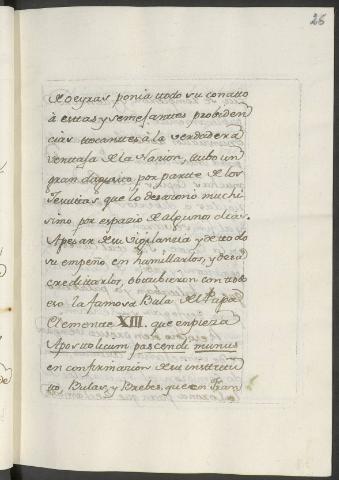 26
de Oeyras ponia ttodo su conatto
à esttas y semejanttes probiden
cias ttocanttes à la verdadera
venttaja de la Nacion, ttubo un
gran disgusto por partte de los
Jesuitas que lo desazonò muchi
simo por espazio de algunos dias.
Apesar de su vigilanzia y de ttodo
su empeño en humillarlos, y desa
credittarlos, obttubieron con ttodo
eso la famosa Bula del Papa
Clementte XIII. que empieza
Aposttolicum pascendi munus
en confirmazion de su instittu
tto, Bulas, y Brebes, que en Fran